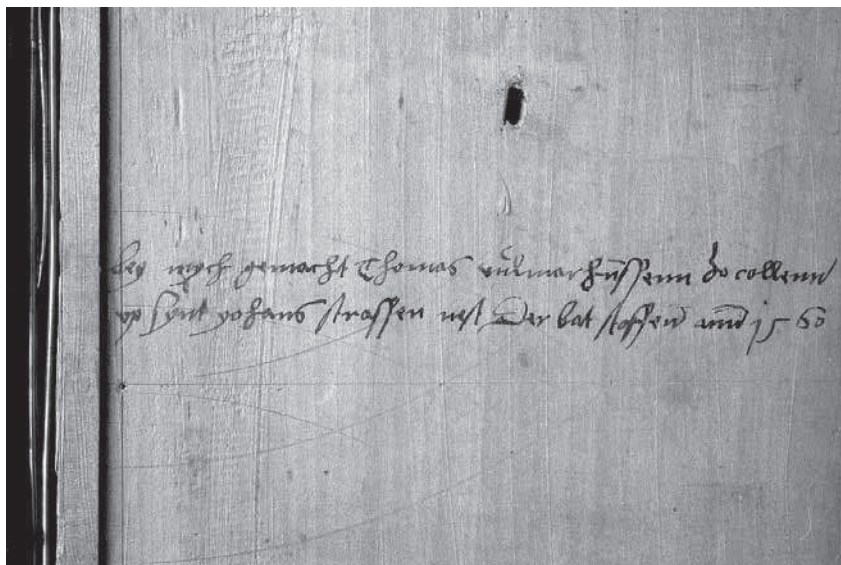 bey mych gemacht Thomas vulmarhussenn zo collenn
vp synt yohans strassen nest Der bat stossen anno 1560